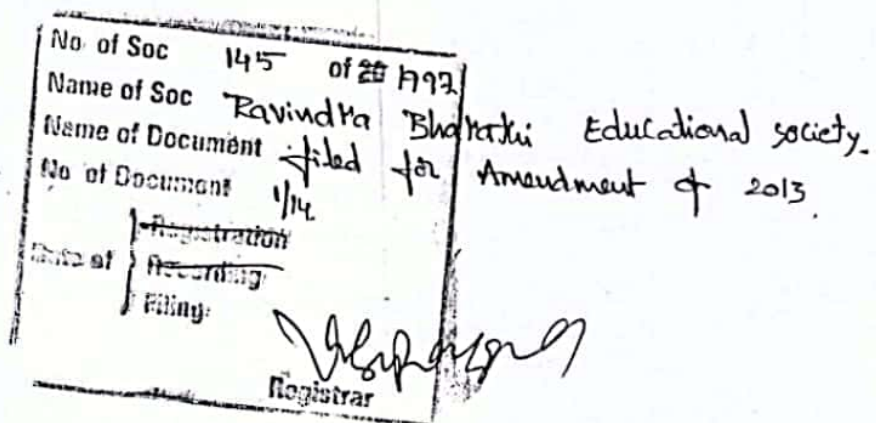 No. of Soc 145 of 20 1997
Name of Soc Ravindra Bharathi Educational society.
Name of Document filed for Amendment of 2013.
No of Document 1/14
Registration
Date of } Recording
Filing
Registrar